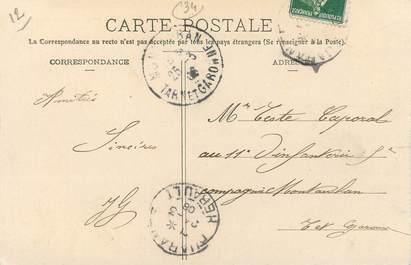 12
(34)
CARTE POSTALE
La Correspondance au recto n'est pas acceptée par tous les pays étrangers (Se renseigner à la Poste)
CORRESPONDANCE
ADRESSE
TARN-ET-GARONNE
Amitiés
Sincères
JG
Mr Teste Caporal
au 11e d'infanterie
compagnie Montauban
T et Garonne
HERAULT